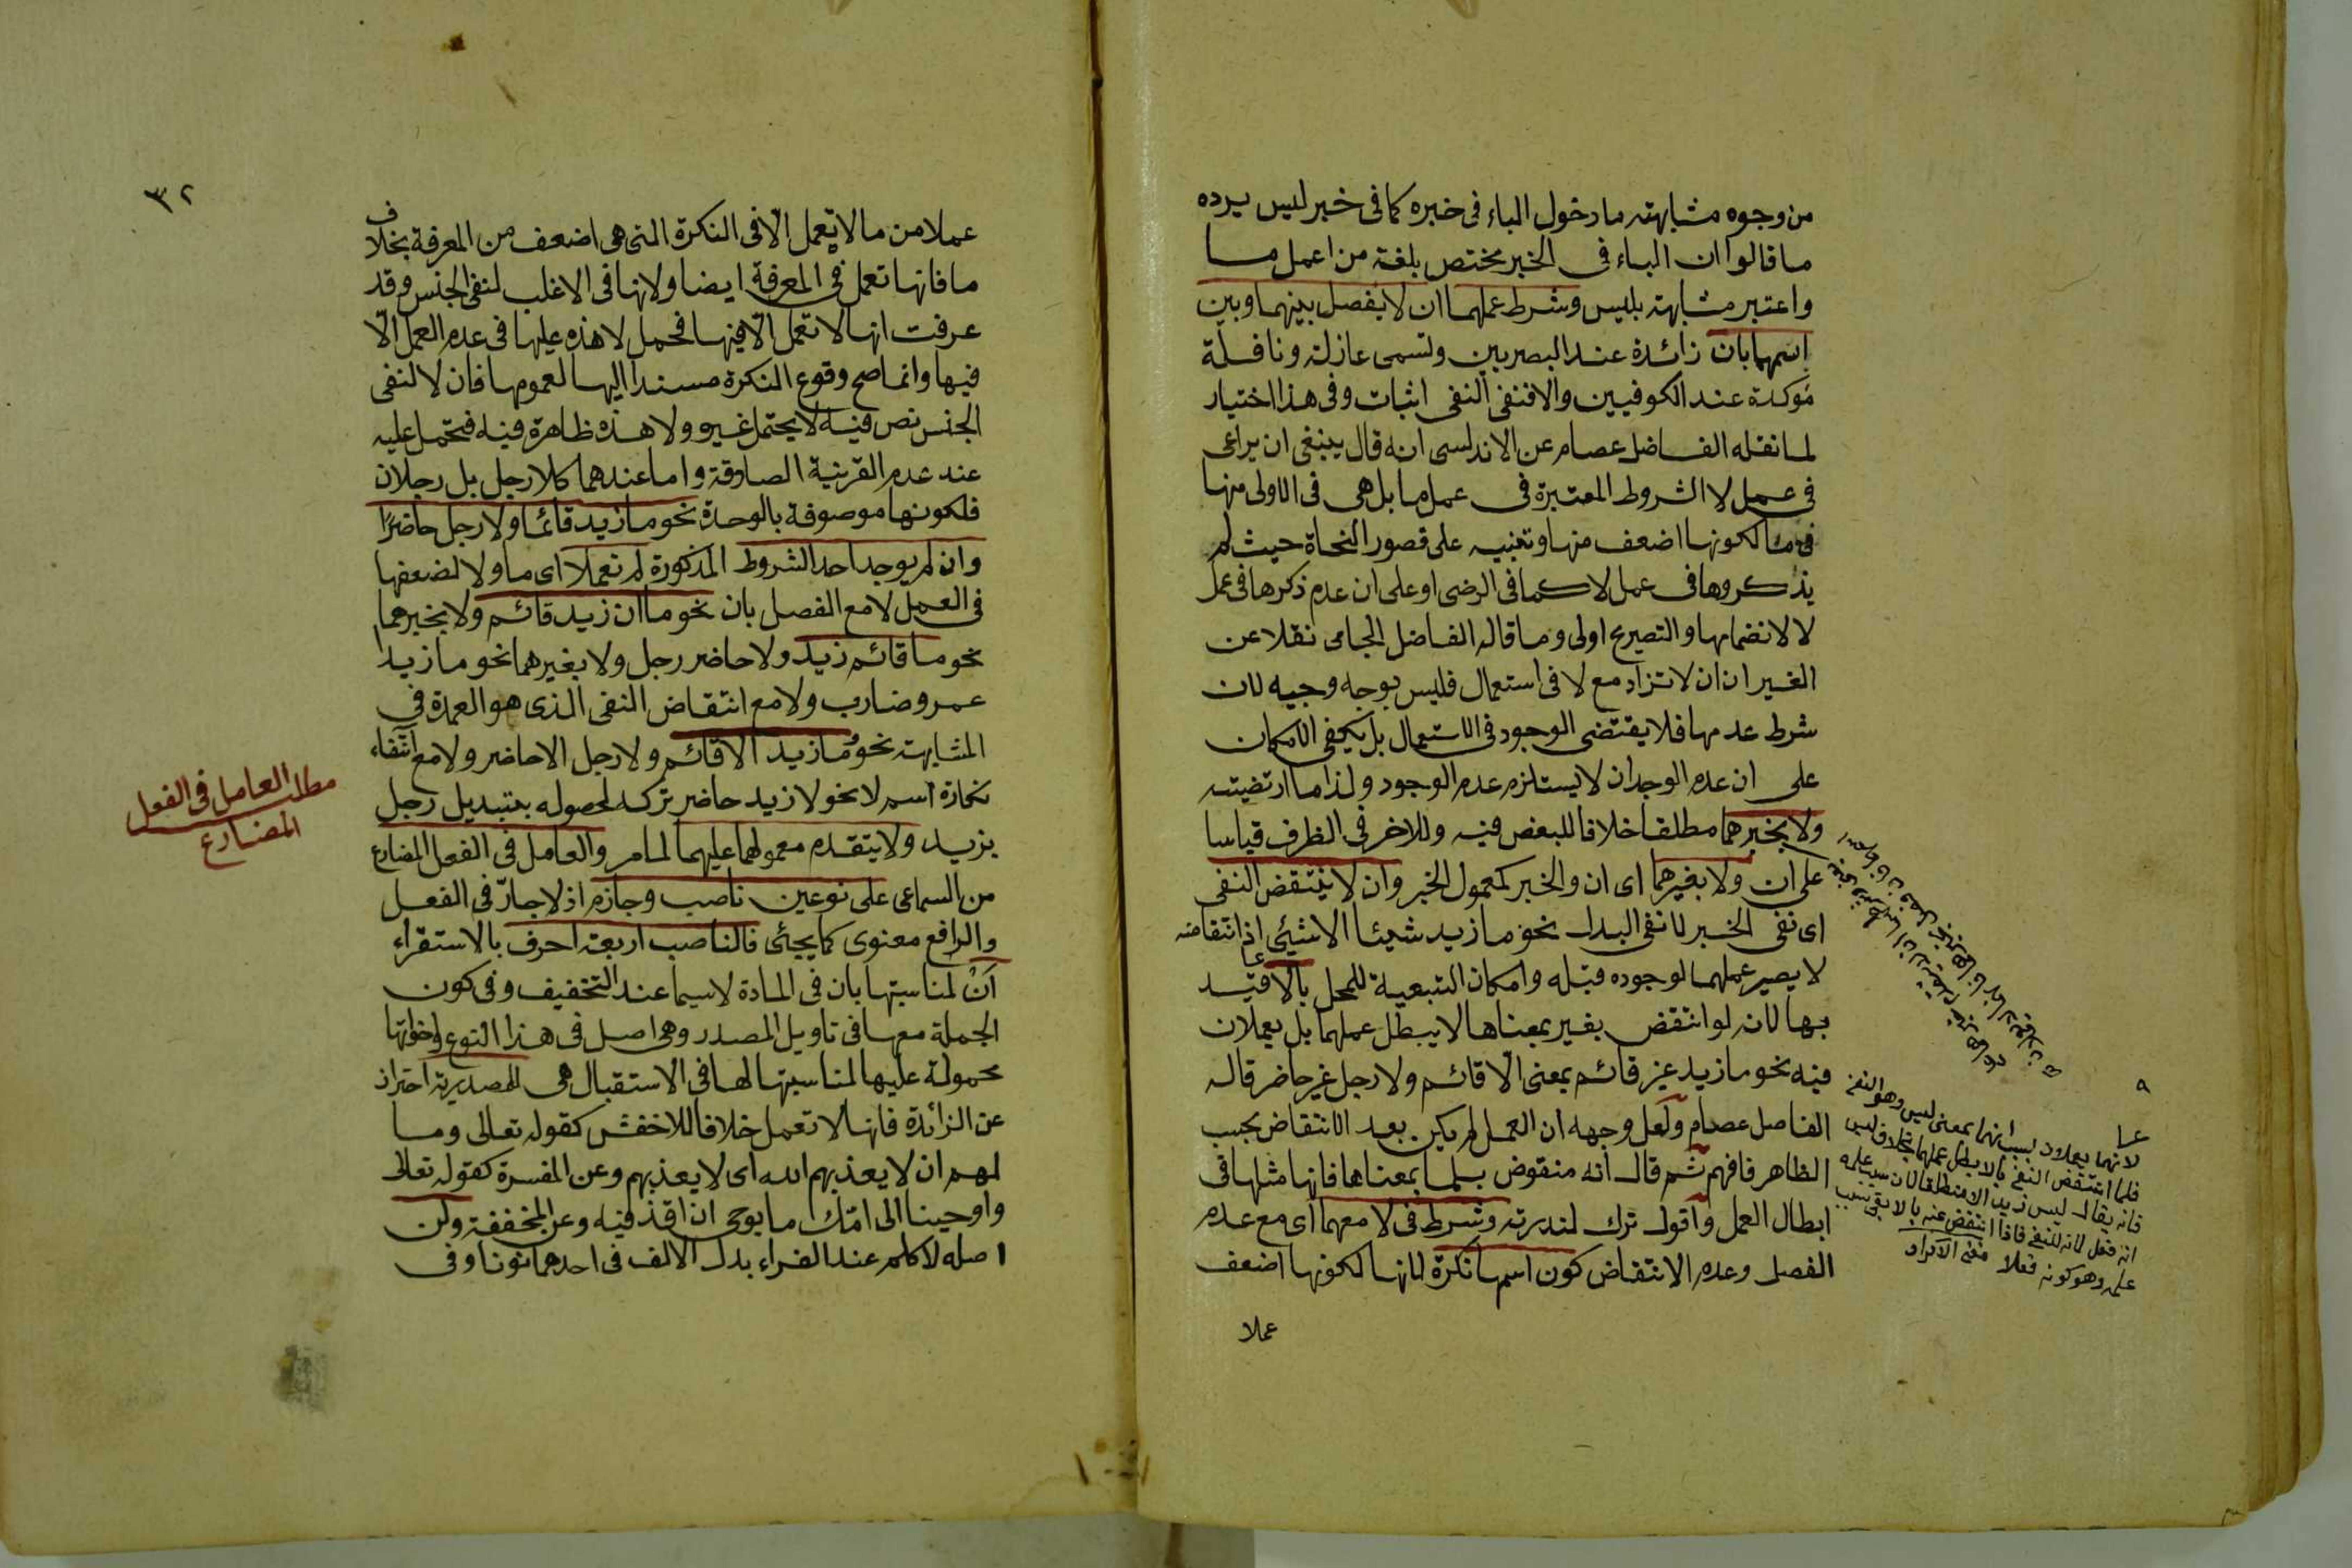 من وجوه مشابهته ما دخول الباء فى خبره كما فى خبر ليس يرده
ما قالوا ان الباء فى الخبر يختص بلغة من اعمل ما
واعتبر مشابهته بليس وشرط عملهما ان لا يفصل بينهما وبين
اسمهما بان زائدة عند البصريين وتسمى عازلة ونافلة
مؤكدة عند الكوفيين والا فنفى النفى اثبات وفى هذا اختيار
لما نقله الفاضل عصام عن الاندلسى انه قال ينبغى ان يراعى
فى عمل لا الشروط المعتبرة فى عمل ما بل هى فى الاولى منها
فى ما لكونها اضعف منها وتنبيه على قصور النحاة حيث لم
يذكروها فى عمل لا كما فى الرضى او على ان عدم ذكرها فى عمل
لا لانضمامها والتصريح اولى وما قاله الفاضل الجامى نقلا عن
الغير ان ان لا تزاد مع لا فى استعمال فليس بوجه وجيه لان
شرط عدمها فلا يقتضى الوجود فى الاستعمال بل يكفى الامكان
على ان عدم الوجدان لا يستلزم عدم الوجود ولذا ما ارتضيته
ولا بخبرهما مطلقا خلافا للبعض فيه وللاخر فى الظرف قياسا
على ان ولا بغيرهما اى ان والخبر كمعمول الخبر وان لا ينتقض النفى
اى نفى الخبر لا نفى البدل نحو ما زيد شيئا الا شيئى اذ انتقاضه
لا يصير عملهما لوجوده قبله وامكان التبعية للمحل بالا قيد
بها لانه لو انتقض بغير بمعناها لا يبطل عملهما بل يعملان
فيه نحو ما زيد غير قائم بمعنى الا قائم ولا رجل غير حاضر قاله
الفاضل عصام ولعل وجهه ان العمل لم يكن بعد الانتقاض بحسب
الظاهر فافهم ثم قال انه منقوض بلما بمعناها فانها مثلها فى
ابطال العمل واقول ترك لندرته وشرط فى لا معهما اى مع عدم
الفصل وعدم الانتقاض كون اسمها نكرة لانها لكونها اضعف
عملا
عا
لانهما يعملان لسبب انهما بمعنى ليس وهو النفى
فلما انتقض النفى بالا بطل عملهما بخلاف ليس
فانه يقال ليس زيد الا منطلقا لان سبب عمله
انه فعل لا انه للنفى فاذا انتقض عنه بالا بقى سبب
عمله وهو كونه فعلا
٣٢
عملا من ما لا يعمل الا فى النكرة التى هى اضعف من المعرفة بخلاف
ما فانها تعمل فى المعرفة ايضا ولانها فى الاغلب لنفى الجنس وقد
عرفت انها لا تعمل الا فيها فحمل لا هذه عليها فى عدم العمل الا
فيها وانما صح وقوع النكرة مسندا اليها لعمومها فان لا لنفى
الجنس نص فيه لا يحتمل غيره ولا هذه ظاهرة فيه فتحمل عليه
عند عدم القرينة الصادقة واما عندهما كلا رجل بل رجلان
فلكونها موصوفة بالوحدة نحو ما زيد قائما ولا رجل حاضرا
وان لم يوجد احد الشروط المذكورة لم تعملا اى ما ولا لضعفها
فى العمل لا مع الفصل بان نحو ما ان زيد قائم ولا بخبرهما
نحو ما قائم زيد ولا حاضر رجل ولا بغيرهما نحو ما زيدا
عمرو ضارب ولا مع انتقاض النفى الذى هو العمدة فى
المشابهة نحو ما زيد الا قائم ولا رجل الا حاضر ولا مع انتفاء
نكارة اسم لا نحو لا زيد حاضر تركه لحصوله بتبديل رجل
بزيد ولا يتقدم معمولهما عليهما لما مر والعامل فى الفعل المضارع
من السماعى على نوعين ناصب وجازم اذ لا جار فى الفعل
والرافع معنوى كما يجئى فالناصب اربعة احرف بالاستقراء
ان لمناسبتها بان فى المادة لاسيما عند التخفيف وفى كون
الجملة معها فى تاويل المصدر وهى اصل فى هذا النوع اخواتها
محمولة عليها لمناسبتها لها فى الاستقبال هى المصدرية احتراز
عن الزائدة فانها لا تعمل خلافا للاخفش كقوله تعالى وما
لهم ان لا يعذبهم الله اى لا يعذبهم وعن المفسرة كقوله تعالى
واوحينا الى امك ما يوحى ان اقذفيه وعن المخففة ولن
اصله لا كلم عند الفراء بدل الالف فى احدهما نونا وفى
مطلب العامل فى الفعل
المضارع